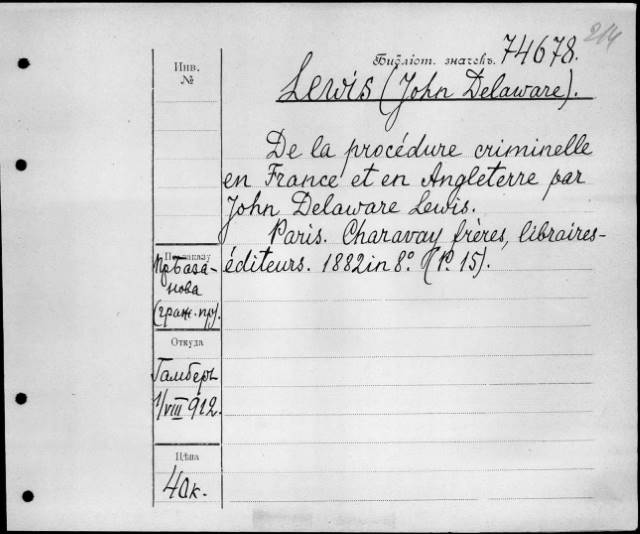 214
Библіот. значекъ. 74678.
Инв.
№
Lewis (John Delaware).
De la procédure criminelle
en France et en Angleterre par
John Delaware Lewis.
Paris. Charavay frères, libraires-
éditeurs. 1882 in 8º (1º. 15).
По заказу
нова
(граж. пр).
Откуда
Гамберъ
1/VIII 912.
Цѣна
40к.